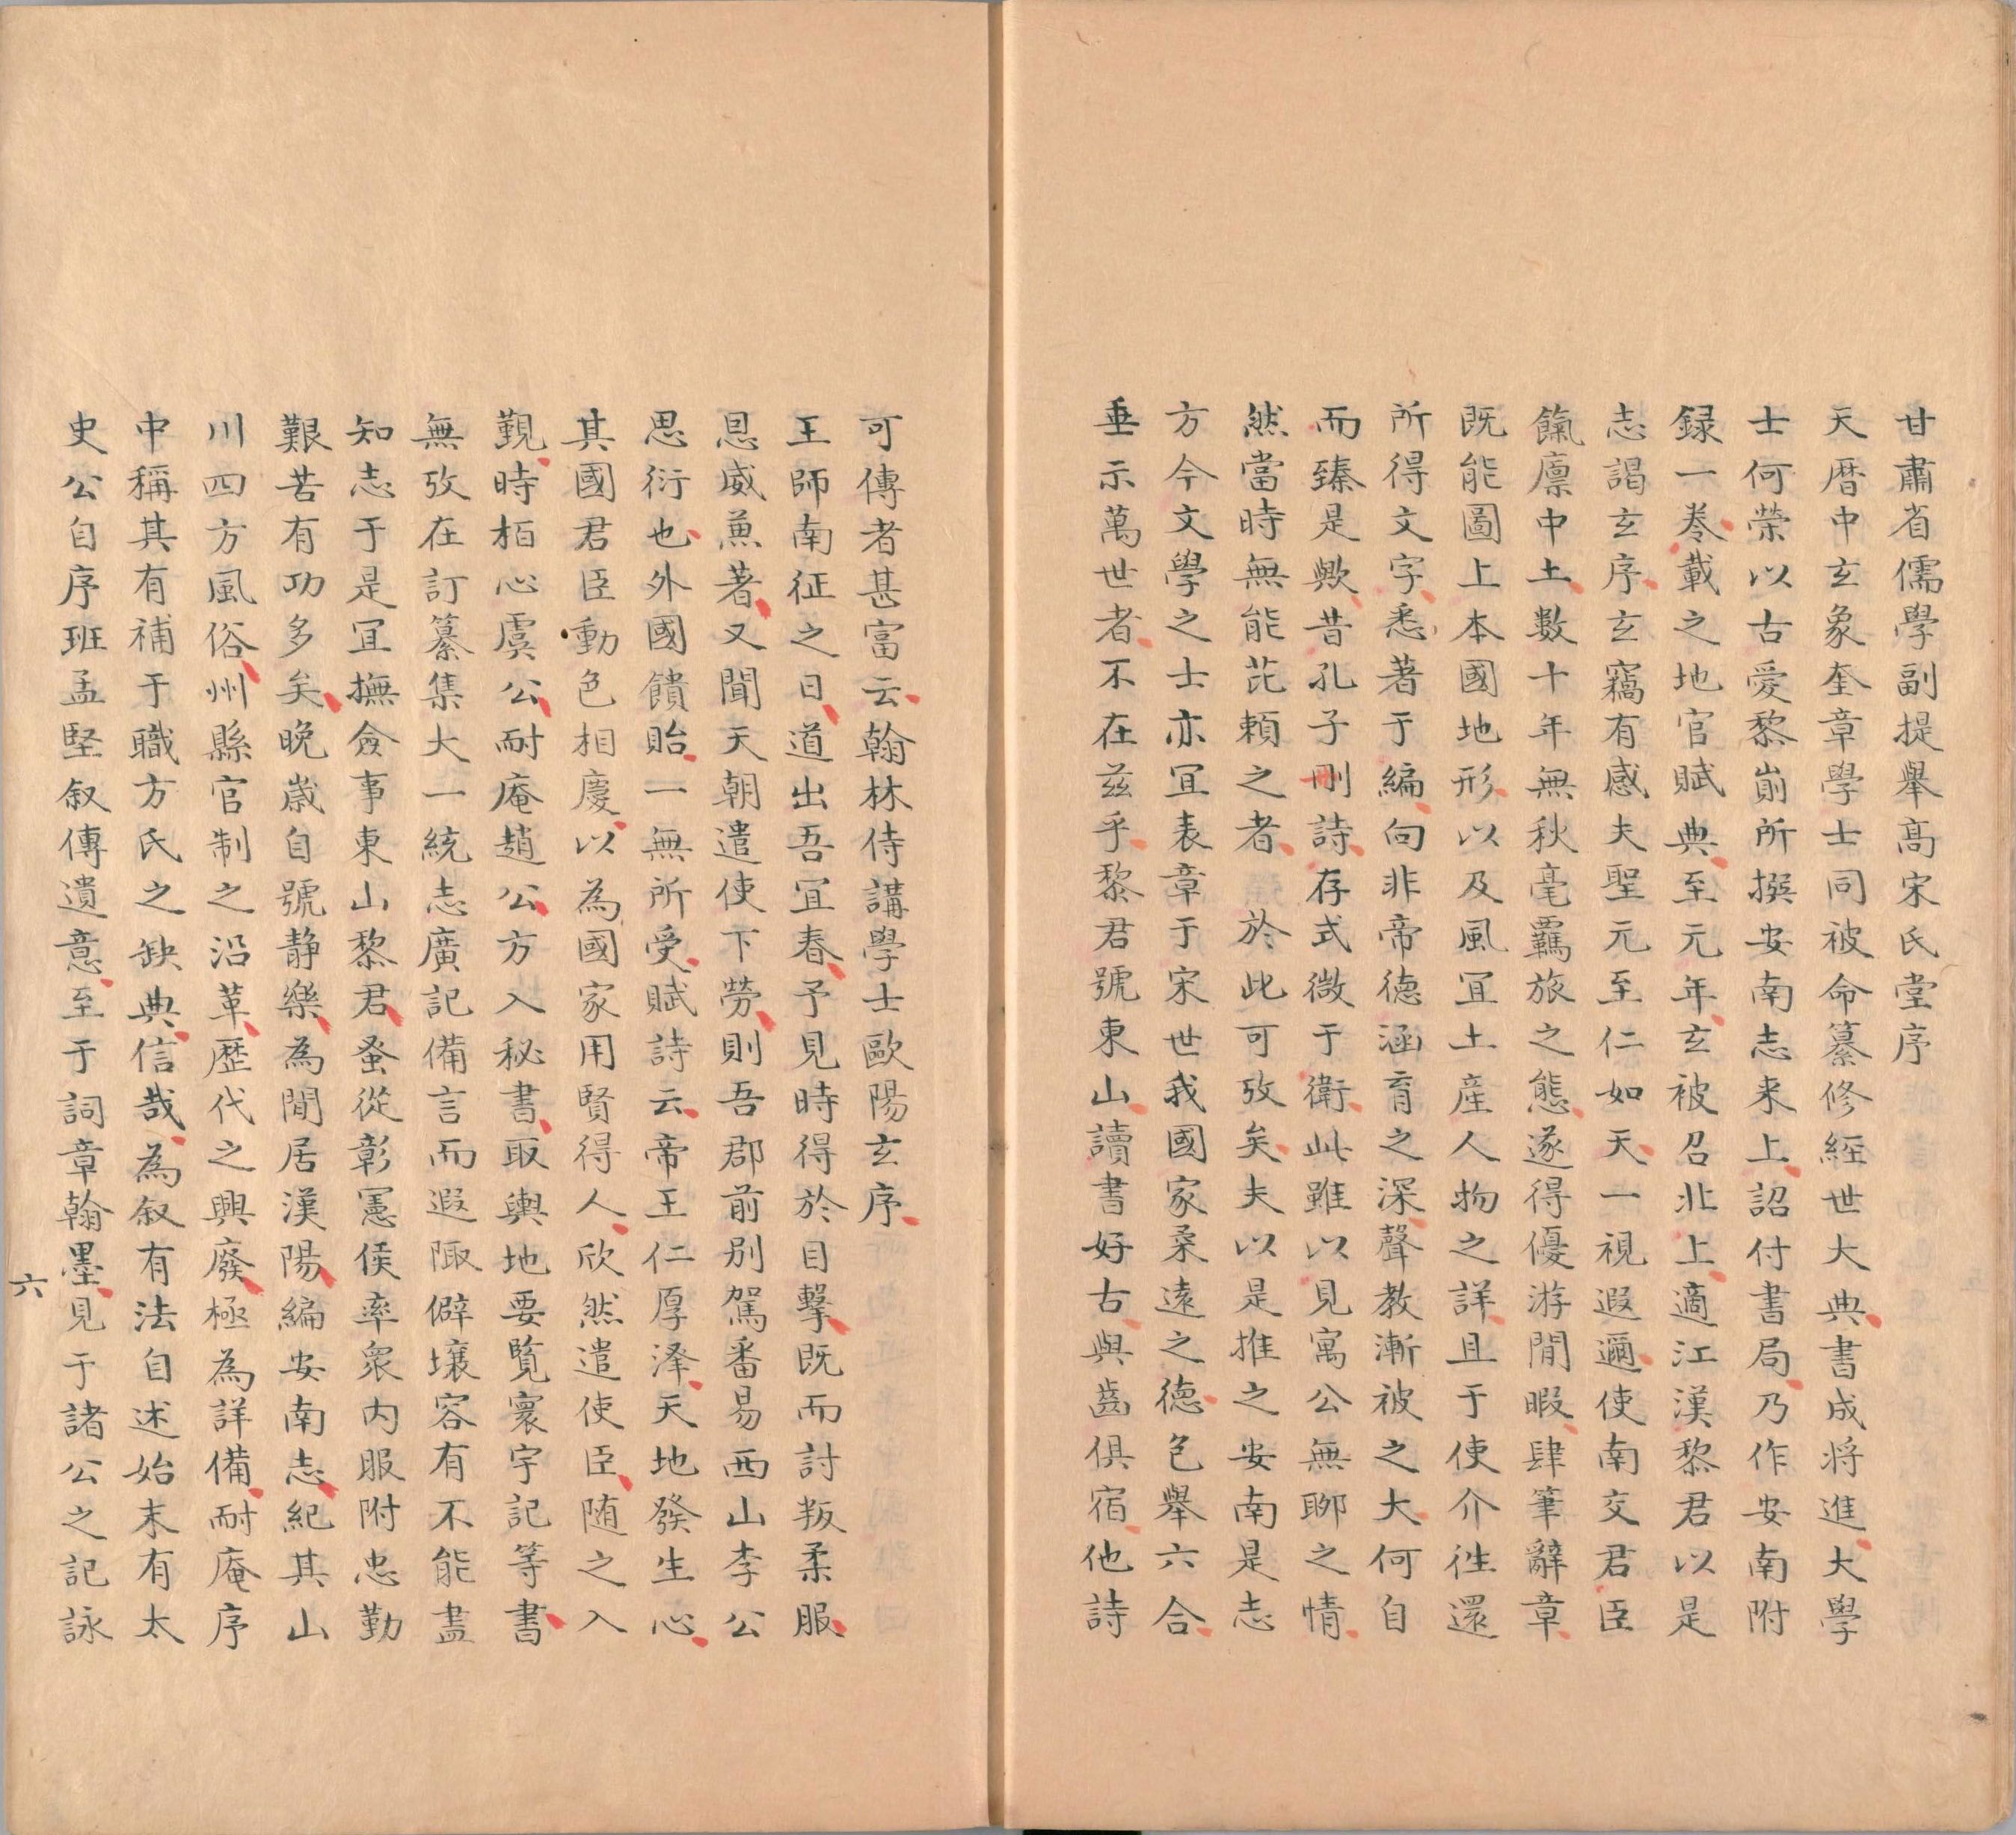 甘肅省儒學副提舉高宋氏堂序
天曆中玄象奎章學士同被命纂修經世大典書成將進大學
士何榮以古愛黎崱所撰安南志来上詔付書局乃作安南附
録一卷載之地官賦典至元年玄被召北上適江漢黎君以是
志謁玄序玄竊有感夫聖元至仁如天一視遐邇使南交君臣
餼廪中土數十年無秋毫羈旅之態遂得優游閒暇肆筆辭章
既能圖上本國地形以及風宜土産人物之詳且于使介徃還
所得文字悉著于編向非帝德涵育之深聲教漸被之大何自
而臻是歟昔孔子刪詩存式微于衛此雖以見寓公無聊之情
然當時無能芘賴之者於此可攷矣夫以是推之安南是志
方今文學之士亦宜表章于宋世我國家柔遠之德包舉六合
垂示萬世者不在兹乎黎君號東山讀書好古與齒俱宿他詩
可傳者甚富云翰林侍講學士歐陽玄序
王師南征之日道出吾宜春予見時得於目擊既而討叛柔服
恩威兼著又聞天朝遣使下勞則吾郡前别駕番易西山李公
思衍也外國饋貽一無所受賦詩云帝王仁厚澤天地發生心
其國君臣動色相慶以為國家用賢得人欣然遣使臣随之入
覲時栢心虞公耐庵趙公方入秘書取輿地要覧寰宇記等書
無攷在訂纂集大一統志廣記備言而遐陬僻壤容有不能盡
知志于是宜撫僉事東山黎君蚤從彰憲侯率衆内服附忠勤
艱苦有功多矣晚歳自號静樂為閒居漢陽編安南志紀其山
川四方風俗州縣官制之沿革歴代之興廢極為詳備耐庵序
中稱其有補于職方氏之缺典信哉為叙有法自述始末有太
史公自序班孟堅叙傳遺意至于詞章翰墨見于諸公之記詠
六